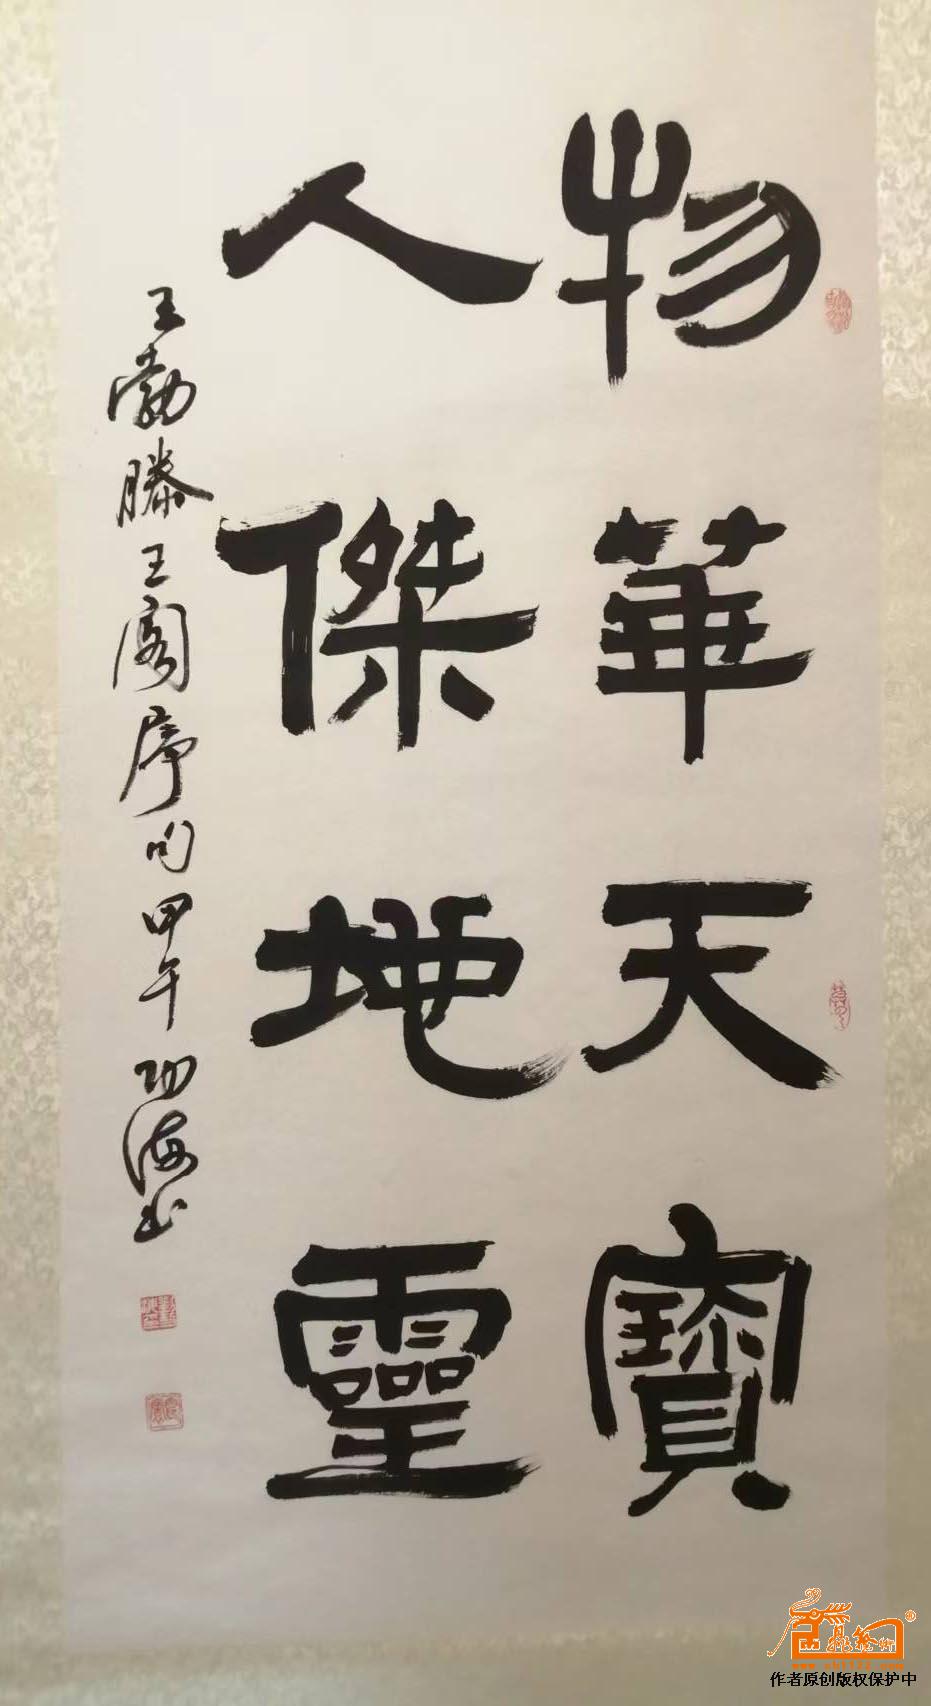 物華天寶
人傑地靈
王勃滕王阁序句甲午功海书
作者原创版权保护中